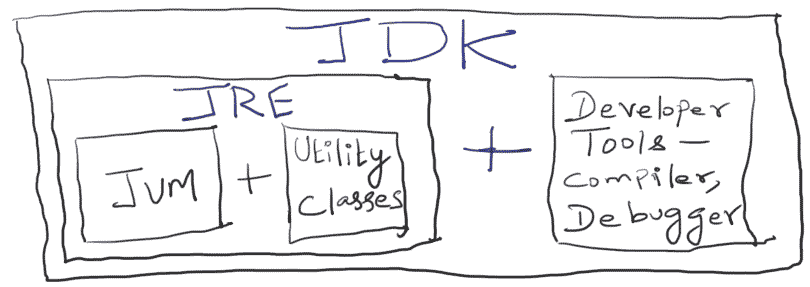 JDK
JRE
JVM
+
Utility
Classes
+
Developer
Tools –
Compiler,
Debugger